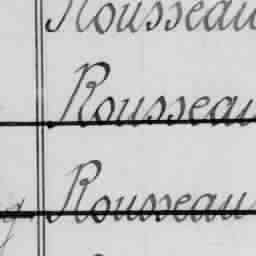 Rousseau
Rousseau
Rousseau